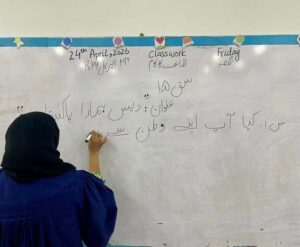 24th April, 2026 Classwork Friday
۲۴ اپریل ۲۰۲۶ جماعت کا کام جمعہ
سبق ۱۵
عنوان: دیس ہمارا پاکستان
س۱۔ کیا آپ اپنے وطن سے